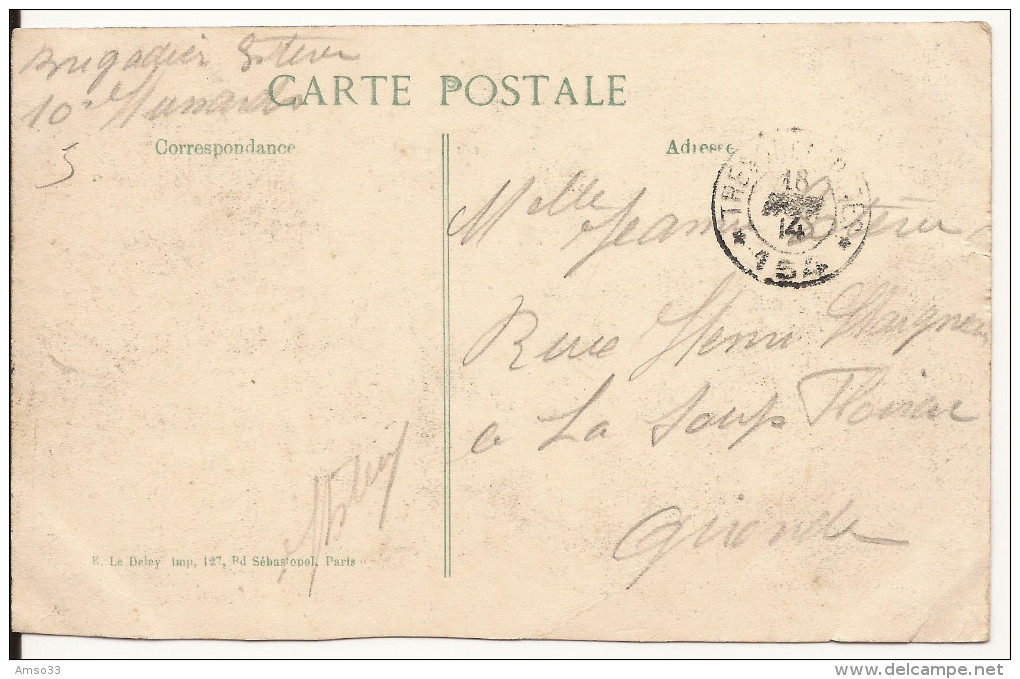 Brigadier Esteve
10e Hussards
5
CARTE POSTALE
Correspondance
Adresse
TRESOR ET POSTES
18
14
* 154 *
Mlle Jeanne Esteve
Rue Henri
a La Souys Floirac
Gironde
E. Le Deley Imp, 127, Bd Sébastopol, Paris
Amso33
www.delcampe.net